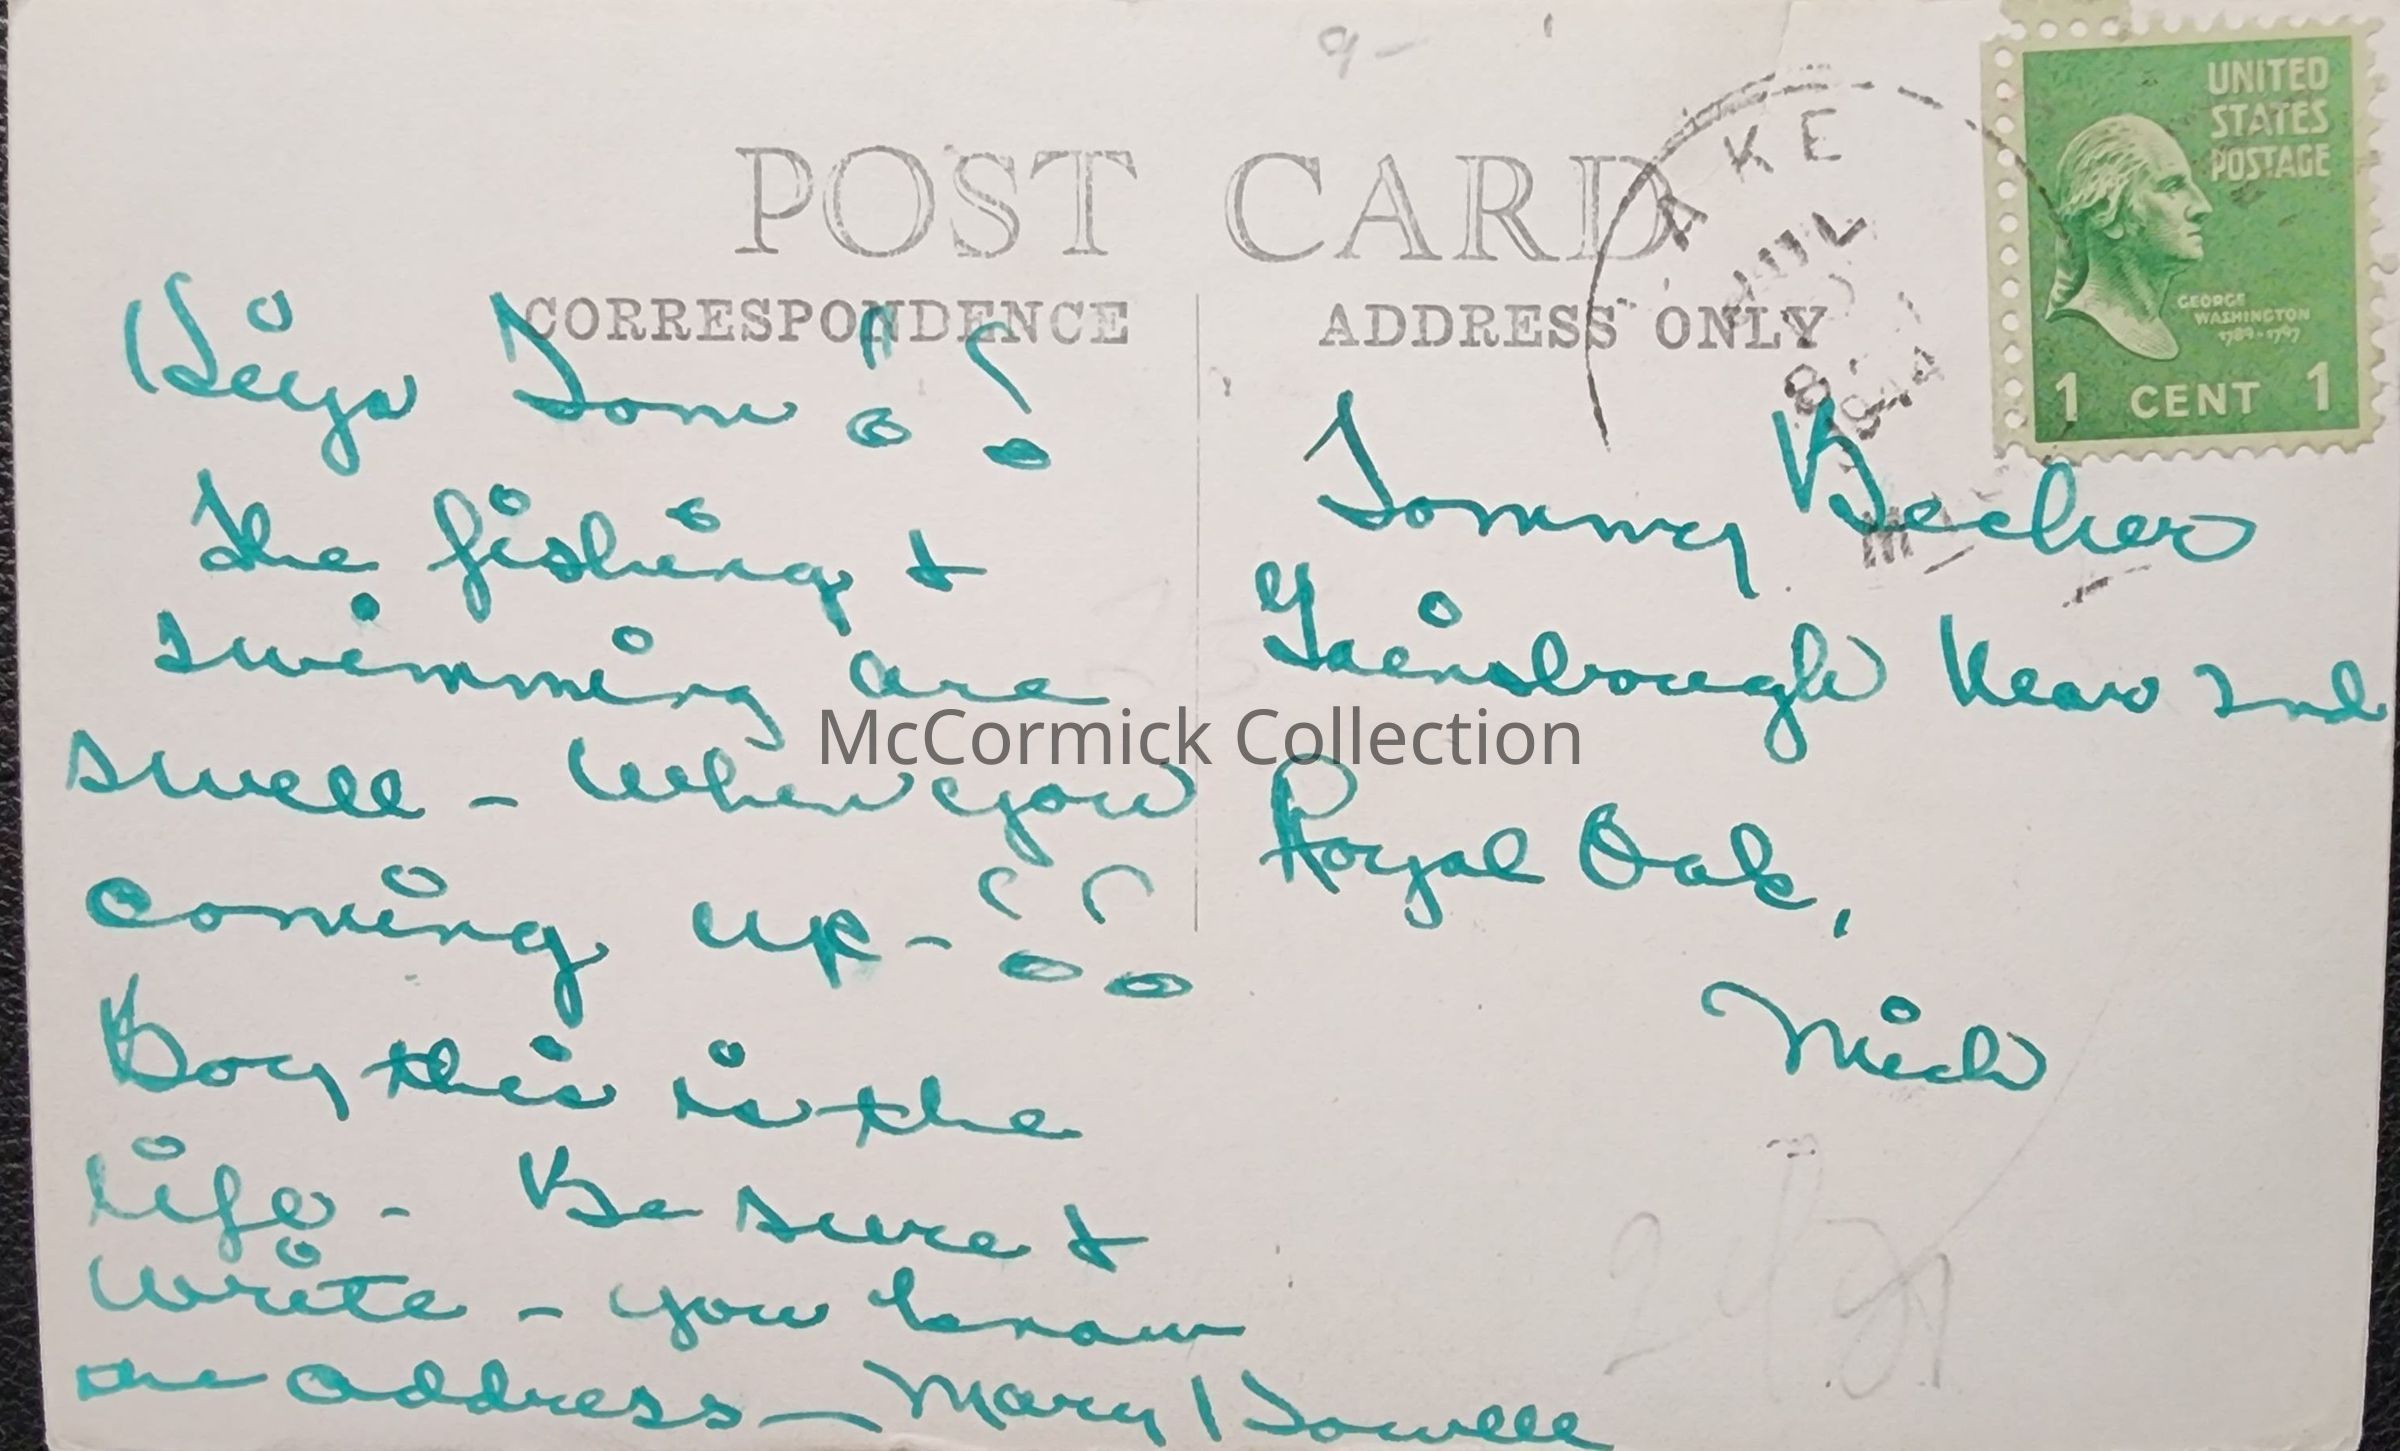 9-
POST CARD
CORRESPONDENCE
ADDRESS ONLY
AKE
JUL
8
1944
UNITED
STATES
POSTAGE
GEORGE
WASHINGTON
1789-1797
1 CENT 1
Hiya Tom !!
The fishing &
swimming are
swell - When you
coming up - ??
Boy this is the
life - Be sure &
write - you know
the address - Mary Howell
Tommy Becher
Gainsborough Near 2nd
Royal Oak,
Mich
McCormick Collection